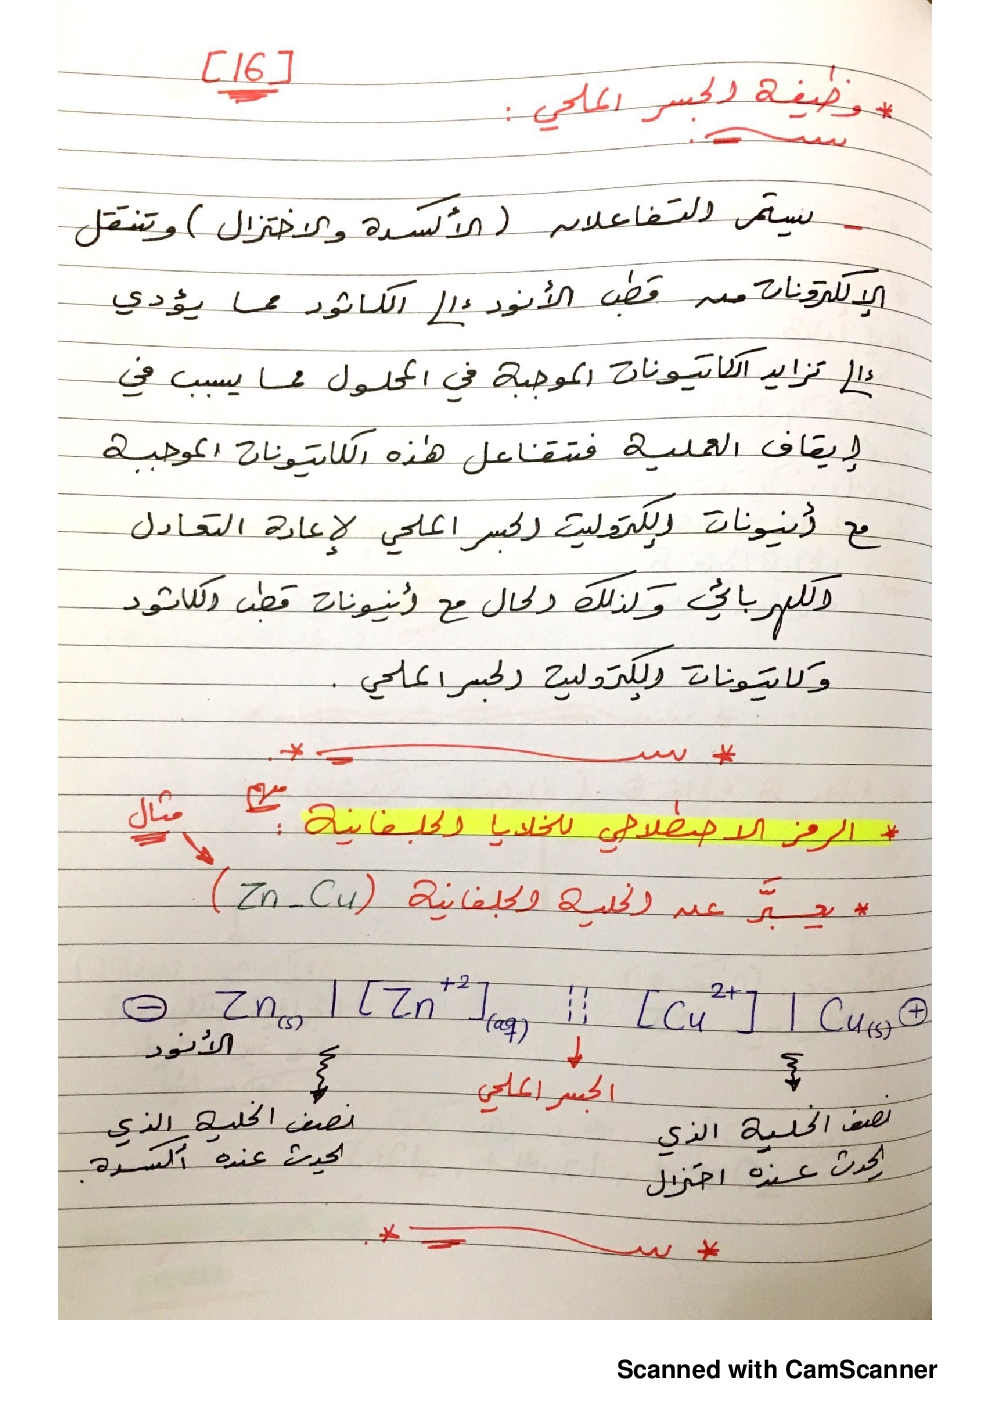 [16]
* وظيفة الجسر الملحي :
- يستمر التفاعلان (الأكسدة والاختزال) وتنتقل
الإلكترونات من قطب الأنود إلى الكاثود مما يؤدي
إلى تزايد الكاتيونات الموجبة في المحلول مما يسبب في
إيقاف العملية فتتفاعل هذه الكاتيونات الموجبة
مع أنيونات إلكتروليت الجسر الملحي لإعادة التعادل
الكهربائي وكذلك الحال مع أنيونات قطب الكاثود
وكاتيونات إلكتروليت الجسر الملحي .
مهم
* الرمز الاصطلاحي للخلايا الجلفانية :
مثال
* يعبَّر عن الخلية الجلفانية (Zn-Cu)
⊖ Zn(s) | [Zn+2](aq) ¦¦ [Cu2+] | Cu(s) ⊕
الأنود
الجسر الملحي
نصف الخلية الذي
يحدث عنده أكسدة.
نصف الخلية الذي
يحدث عنده اختزال
Scanned with CamScanner